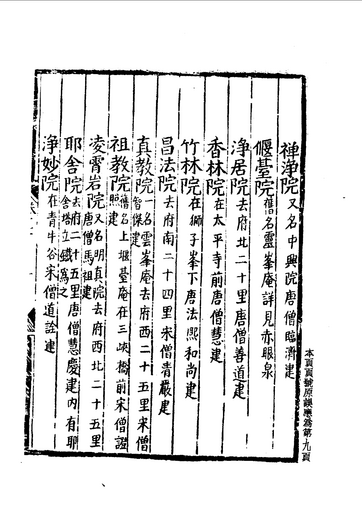 禪淨院又名中興院唐僧臨濟建
偃臺院舊名靈峯庵詳見赤眼泉
淨居院去府北二十里唐僧善道建
香林院在太平寺前唐僧慧建
竹林院在獅子峯下唐法熙和尚建
昌法院去府南二十四里宋僧青嚴建
真教院一名雲峯庵去府西二十五里宋僧智傑建
祖教院舊名上堰臺庵在三峽橋前宋僧證照建
凌霄岩院又名明真院去府西北二十五里唐僧馬祖建
耶舍院去府二十五里唐僧慧慶建內有耶舍塔立鐵為之
淨妙院在青牛谷宋僧道詮建
本頁頁號原誤應為第九頁